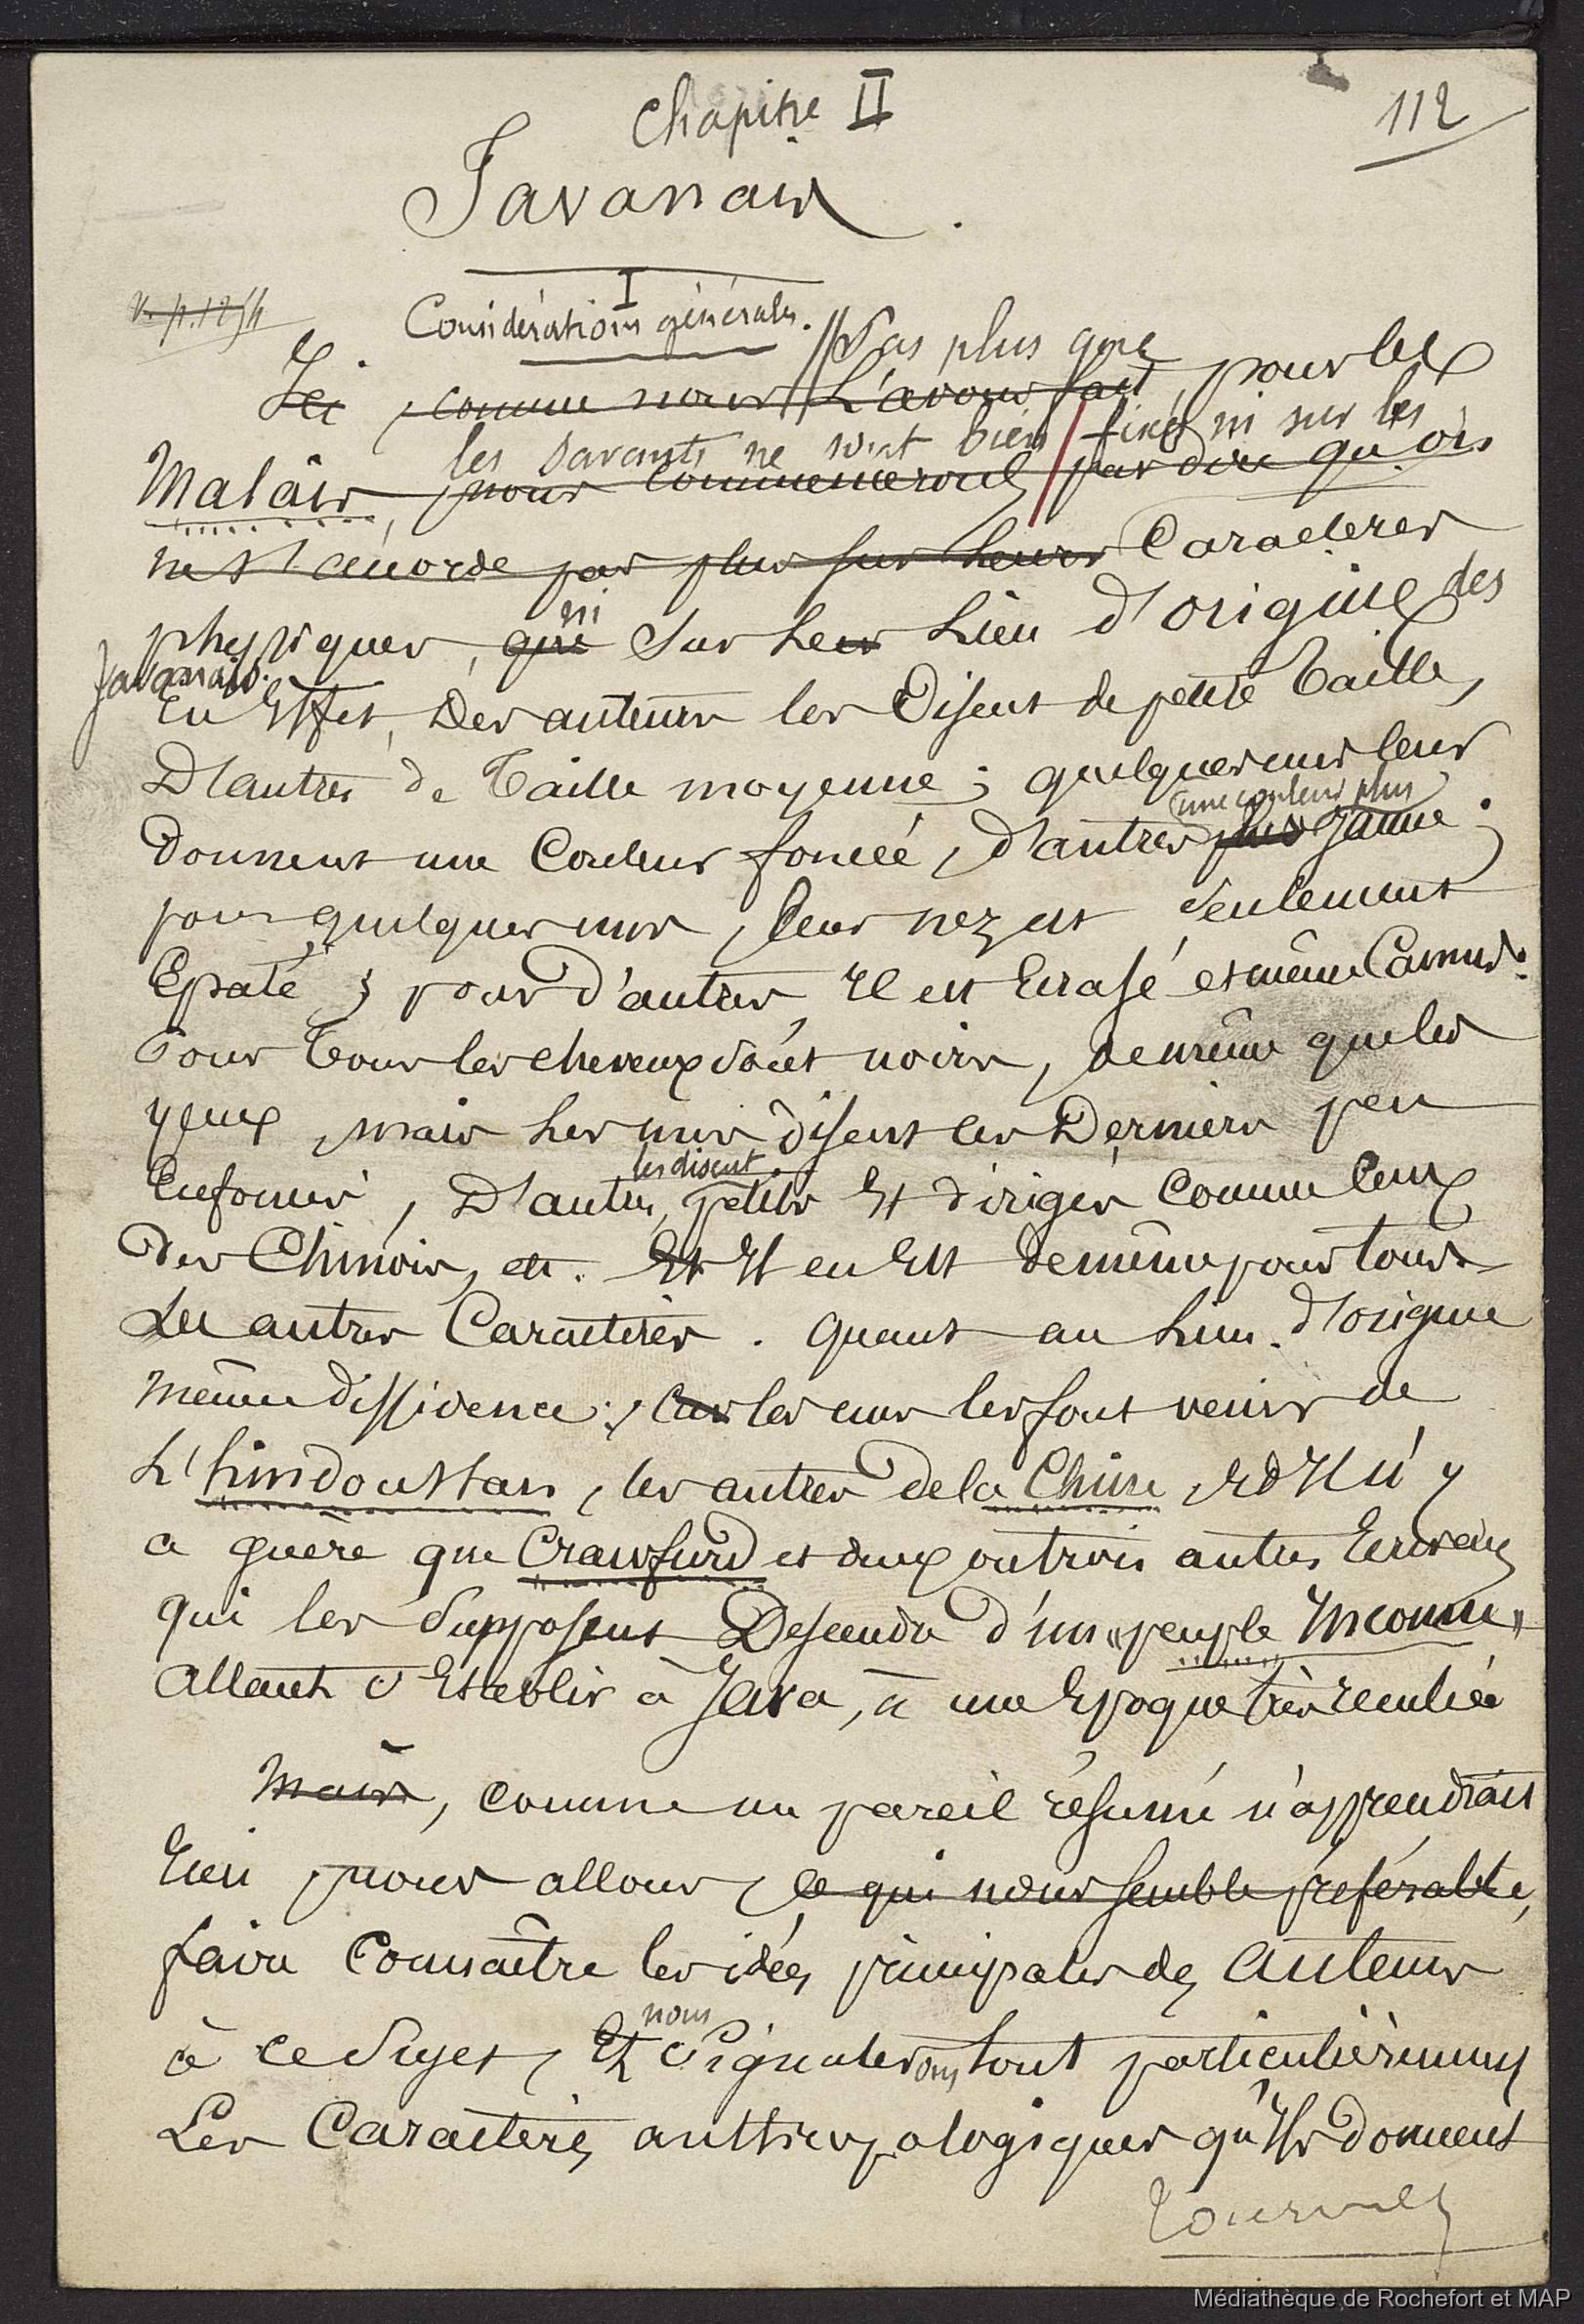 Chapitre II
112
Javanais.
V. p. 125h
I
Considérations générales.
//Pas plus que
Ici, comme nous l'avons fait, pour les
les savants ne sont bien fixés ni sur les
Malais, nous commencerons par dire qu'on
ne s'accorde pas plus sur leurs Caractères
ni
physiques, que sur leur Lieu d'origine des
Javanais.
En Effet, Des auteurs les Disent de petite Taille,
D'autres de Taille moyenne ; quelques uns leur
(une couleur plus
Donnent une Couleur foncée, d'autres plus Jaune ;
pour quelques uns, leur nez est seulement
Epaté ; pour d'autres, Il est Ecrasé et même Camus.
Pour Tous les cheveux sont noirs, de même que les
yeux, mais Les uns disent ces Derniers peu
les disent
Enfoncés, D'autres, petits Et dirigés Comme Ceux
Des Chinois, etc. Et Il en Est de même pour tous
Les autres Caractères. Quant au Lieu d'origine
même dissidence ; Car les uns les font venir de
L'hindoustan, les autres de la Chine, Et Il n'y
a guère que Crawfurd et deux ou trois autres Ecrivains
qui les Supposent Descendu d'un «peuple Inconnu»
allant s'Etablir à Java, à une Epoque très reculée
Mais, comme un pareil résumé n'apprendrait
rien nous allons, ce qui nous semble préférable,
faire Connaître les idées principales des auteurs
nous
à ce Sujet, Et Signalerons tout particulièrement
Les Caractères anthropologiques qu'Ils donnent
Tournez
Médiathèque de Rochefort et MAP